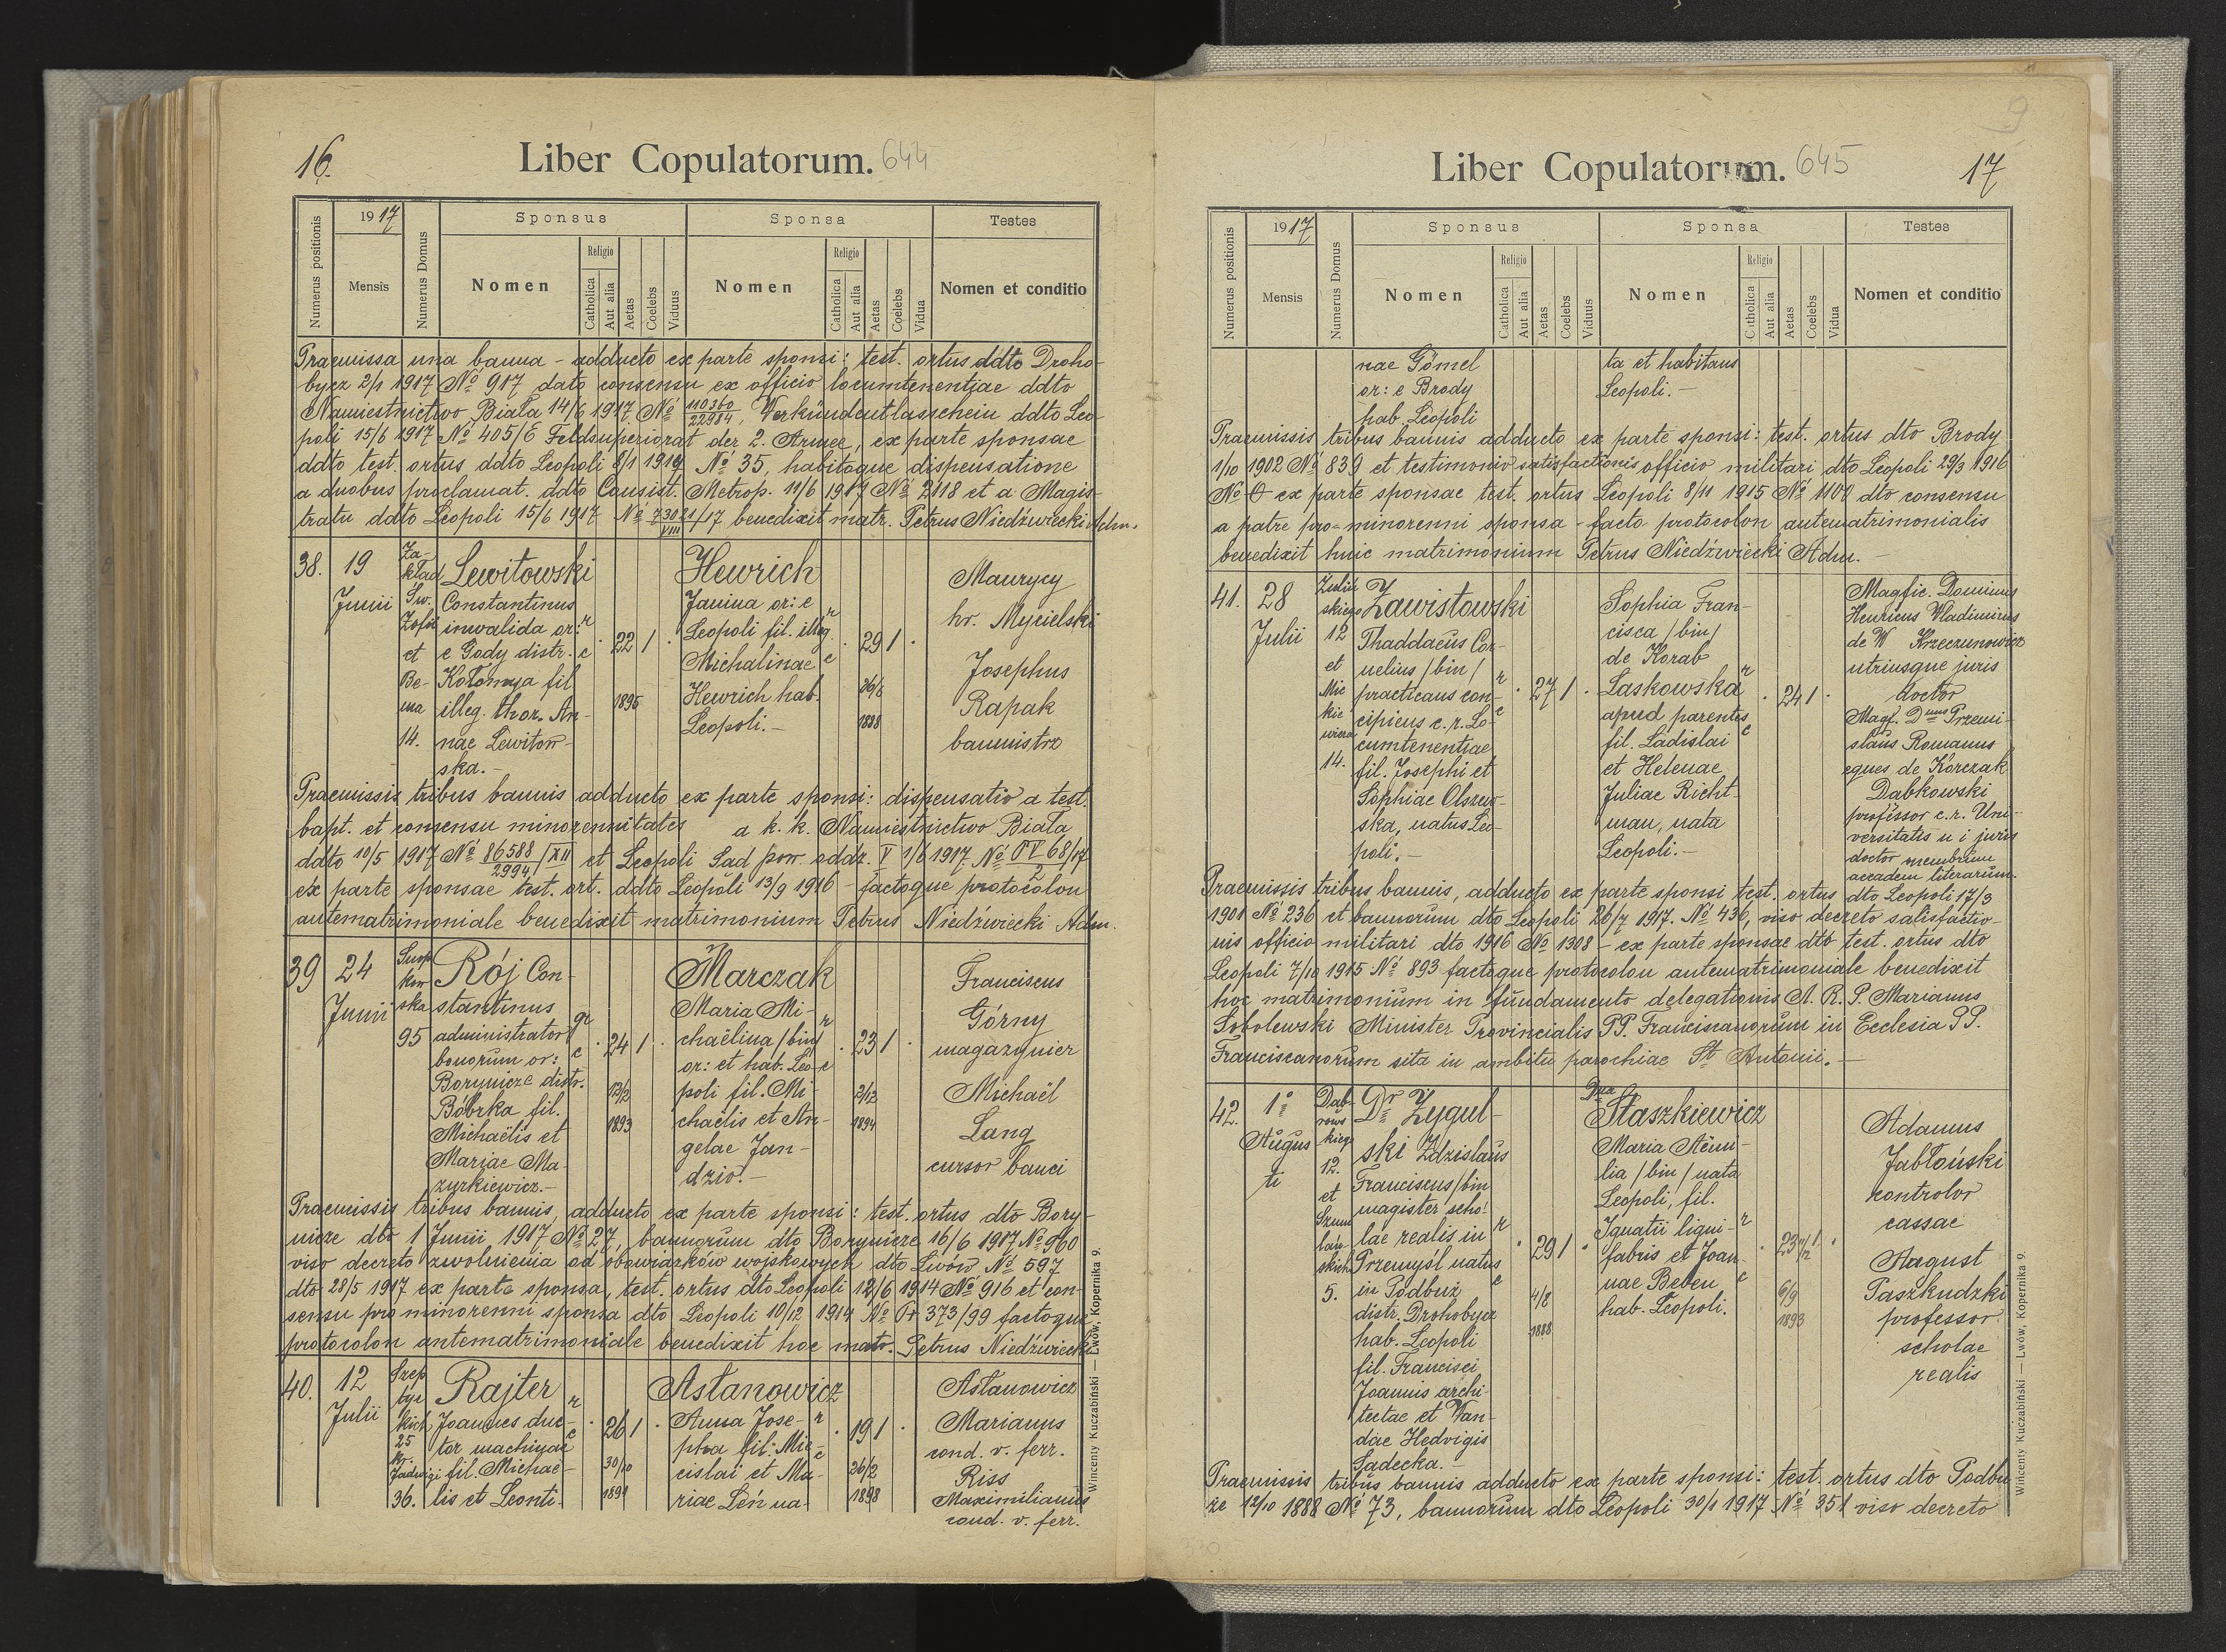 16.
Liber Copulatorum. 644
Numerus positionis
1917
Mensis
Numerus Domus
Sponsus
Nomen
Religio
Catholica
Aut alia
Aetas
Coelebs
Viduus
Sponsa
Nomen
Religio
Catholica
Aut alia
Aetas
Coelebs
Vidua
Testes
Nomen et conditio
Praemissa una banna - adducto ex parte sponsi: test. ortus ddto Droho-
bycz 2/1 1917 No 917 dato consensu ex officio locumtenentiae ddto
Namiestnictwo Biała 14/6 1917. No 110360/22984, Verkündentlasschein ddto Leo-
poli 15/6 1917 No 405/E Feldsuperiorat der 2. Armee, ex parte sponsae
ddto test. ortus ddto Leopoli 8/1 1917 No 35, habitaque dispensatione
a duobus proclamat. ddto Consist. Metrop. 11/6 1917 No 2118 et a Magis-
tratu ddto Leopoli 15/6 1917 No 73021/17 VIII benedixit matr. Petrus Niedźwiecki Adm.
38.
19
Junii
Za-
kład
Św.
Zofii
et
Be-
ma
14.
Lewitowski
Constantinus
inwalida or:
e Gody distr.
Kołomyja fil
illeg. thor. An-
nae Lewitow-
ska.-
r
c
22
1
1895
Hewrich
Janina or: e
Leopoli fil. illeg.
Michalinae
Hewrich hab.
Leopoli.-
r
c
29
1
26/5
1888
Maurycy
hr. Mycielski
Josephus
Rapak
baumistrz
Praemissis tribus bannis adducto ex parte sponsi: dispensatio a test.
bapt. et consensu minorennitatis a k. k. Namiestnictwo Biała
ddto 10/5 1917 No 86588/2994/XII et Leopoli Sad pow. oddz. V 1/6 1917. No PV 68/17/2
ex parte sponsae test. ort. ddto Leopoli 13/9 1916 - factoque protocolon
antematrimoniale benedixit matrimonium Petrus Niedźwiecki Adm.
39
24
Junii
95
Rój Con-
stantinus
administrator
bonorum or:
Borynicze distr.
Bóbrka fil.
Michaëlis et
Mariae Ma-
zurkiewicz.-
gr
c
24
1
1893
Marczak
Maria Mi-
chaëlina /bin/
or: et hab. Leo-
poli fil. Mi-
chaëlis et An-
gelae Jan-
dzio.-
r
c
23
1
2/12
1894
Franciscus
Górny
magazynier
Michaël
Lang
cursor banci
Praemissis tribus bannis, adducto ex parte sponsi: test. ortus dto Bory-
nicze dto 1 Junii, 1917 No 27, bannorum dto Borynicze 16/6 1917 No 960
viso decreto zwolnienia od obowiązków wojskowych dto Lwów No 597
dto 28/5 1917 ex parte sponsa, test. ortus dto Leopoli 12/6 1914 No 916 et con-
sensu pro minorenni sponsa dto Leopoli 10/12 1914 No 373/99 factoque
protocolon antematrimoniale benedixit hoc matr. Petrus Niedźwiecki
40.
12
Julii
Szep
tyc
kich
25
św.
Jadwigi
36.
Rajter
Joannes duc-
tor machinae
fil. Michae-
lis et Leonti-
r
c
26
1
30/10
1891
Astanowicz
Anna Jose-
pha fil. Mie-
cislai et Ma-
riae Leń na-
r
c
19
1
26/2
1898
Astanowicz
Marianus
cond. v. ferr.
Riss
Maximilianus
cond. v. ferr.
Wincenty Kuczabiński — Lwów, Kopernika 9.
9
Liber Copulatorum. 645
17
Numerus positionis
1917
Mensis
Numerus Domus
Sponsus
Nomen
Religio
Catholica
Aut alia
Aetas
Coelebs
Viduus
Sponsa
Nomen
Religio
Catholica
Aut alia
Aetas
Coelebs
Vidua
Testes
Nomen et conditio
nae Gömel
or: e Brody
hab. Leopoli
ta et habitans
Leopoli.-
Praemissis tribus bannis adducto ex parte sponsi: test. ortus dto Brody
1/10 1902 No 839 et testimonio satisfactionis officio militari dto Leopoli 29/3 1916
No 0 ex parte sponsae test. ortus Leopoli 8/11 1915 No 1100 dto consensu
a patre pro-minorenni sponsa - facto protocolon antematrimonialis
benedixit huic matrimonium Petrus Niedźwiecki Adm.-
41.
28
Julii
Zuliń
skiego
12
et
Mic
kie
wicza
14.
Zawistowski
Thaddaeus Cor-
nelius /bin/
practicans con-
cipiens c. r. Lo-
cumtenentiae
fil. Josephi et
Sophiae Olszew-
ska, natus Leo-
poli.-
r
c
27
1
Sophia Fran-
cisca /bin/
de Korab
Laskowska
apud parentes
fil. Ladislai
et Helenae
Juliae Richt-
man, nata
Leopoli.-
r
c
24
1
Magfic. Dominus
Henricus Wladimirus
de W Krzeczunowicz
utriusque juris
doctor
Magf. Dnus Przemi-
slaus Romanus
eques de Korczak
Dąbkowski
professor c. r. Uni-
versitatis u i juris
doctor membrum
accadem literarum.
Praemissis tribus bannis, adducto ex parte sponsi test. ortus dto Leopoli 17/3
1901 No 236 et bannorum dto Leopoli 26/7 1917. No 436, viso decreto satisfactio-
nis officio militari dto 1916 No 1308 - ex parte sponsae dto test. ortus dto
Leopoli 7/10 1915 No 893 factoque protocolon antematrimoniale benedixit
hoc matrimonium in fundamento delegationis A. R. P. Marianus
Sobolewski Minister Provincialis PP. Franciscanorum in Ecclesia PP.
Franciscanorum sita in ambitu parochiae St Antonii.-
42.
1o
Augus
ti
Dąb-
rows
kiego
12.
et
Szum
lań-
skich
5.
Dr Zygul-
ski Zdzislaus
Franciscus /bin
magister scho-
lae realis in
Przemyśl natus
in Podbuż
distr. Drohobycz
hab. Leopoli
fil. Francisci
Joannis archi-
tectae et Wan-
dae Hedvigis
Sądecka.-
r
c
29
1
4/8
1888
Dna
Staszkiewicz
Maria Aemi-
lia /bin/ nata
Leopoli, fil.
Ignatii ligni-
fabris et Joan-
nae Beben
hab. Leopoli.
r
c
23 1/2
1
6/9
1893
Adamus
Jabłoński
controlor
cassae
August
Paszkudzki
professor
scholae
realis
Praemissis tribus bannis adducto ex parte sponsi: test. ortus dto Podbu-
że 12/10 1888 No 73, bannorum dto Leopoli 30/1 1917 No 351 viso decreto
Wincenty Kuczabiński — Lwów, Kopernika 9.
330